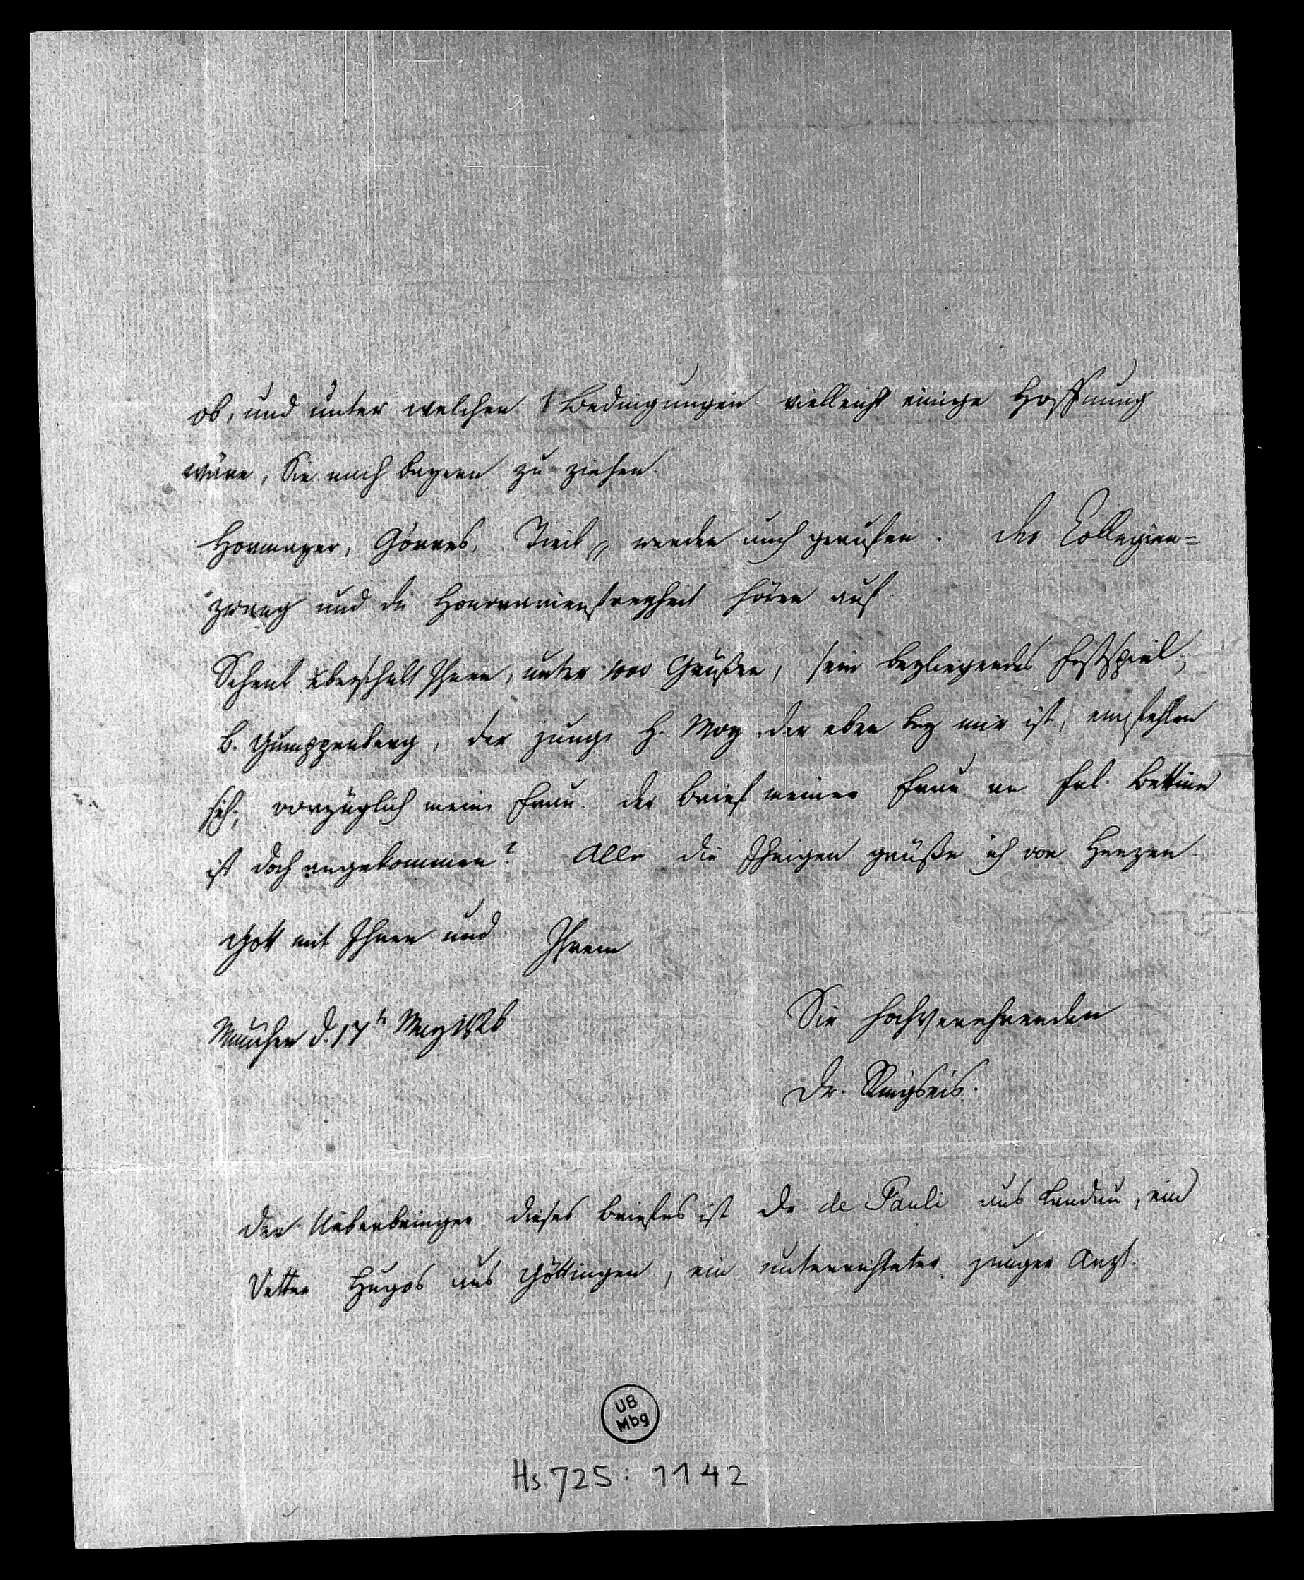 ob, und unter welchen Bedingungen vielleicht einige Hoffnung
wäre, Sie nach Bayern zu ziehen.
Hormayer, Görres, Tieck werden auch gerufen. Der Collegien=
zwang und die Honorarienfreyheit hören auf.
Schenk überschickt Ihnen, unter 1000 Grüßen, sein beyliegendes Festspiel;
B. Gumppenberg, der junge H. Moy der eben bey mir ist, empfehlen
sich, vorzüglich meine Frau. Der Brief meiner Frau an Frl. Bettine
ist doch angekommen? Alle die Ihrigen grüße ich von Herzen.
Gott mit Ihnen und Ihrem
Sie hochverehrenden
München d. 17t May 1826
Dr. Ringseis.
Der Ueberbringer dieses Briefes ist Dr de Pauli aus Landau, ein
Vetter Hugos aus Göttingen, ein unterrichteter junger Arzt.
UB
Mbg
Hs. 725: 1142